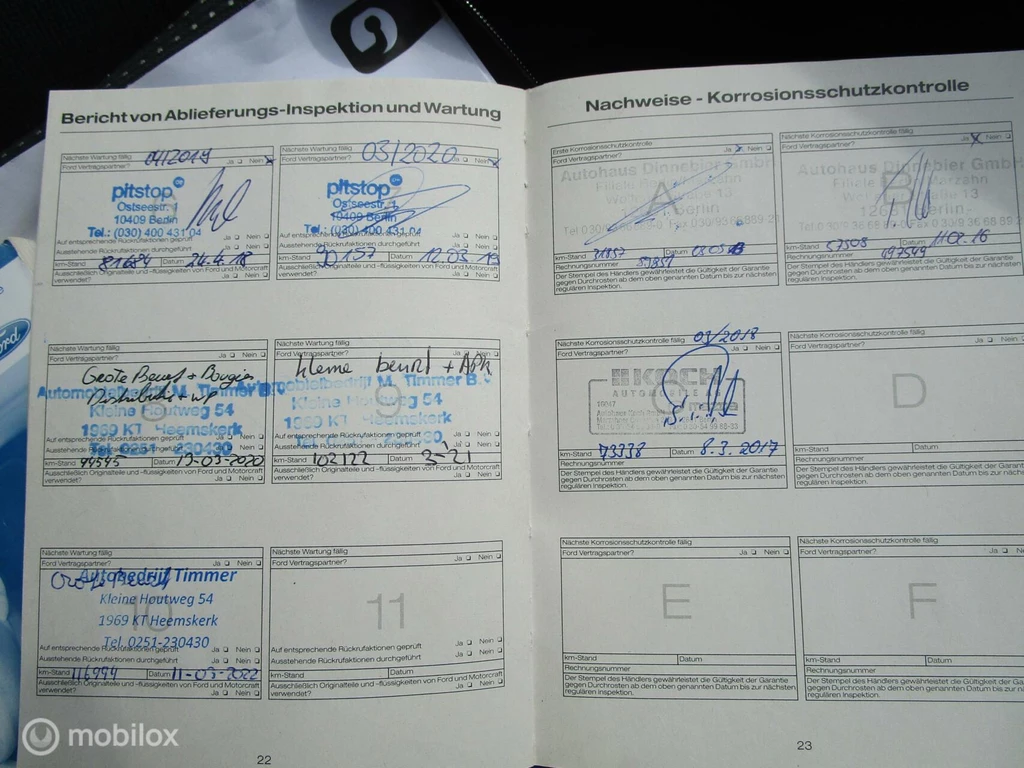 Bericht von Ablieferungs-Inspektion und Wartung
Nächste Wartung fällig 04/2019
Ford Vertragspartner? Ja Nein
pitstop
Ostseestr. 1
10409 Berlin
Tel.: (030) 400 431 04
Auf entsprechende Rückrufaktionen geprüft Ja Nein
Ausstehende Rückrufaktionen durchgeführt Ja Nein
km-Stand 81684 Datum 24.4.18
Ausschließlich Originalteile und -flüssigkeiten von Ford und Motorcraft
verwendet? Ja Nein
Nächste Wartung fällig 03/2020
Ford Vertragspartner? Ja Nein
pitstop
Ostseestr. 1
10409 Berlin
Tel.: (030) 400 431 04
Auf entsprechende Rückrufaktionen geprüft Ja Nein
Ausstehende Rückrufaktionen durchgeführt Ja Nein
km-Stand 90157 Datum 12.03.19
Ausschließlich Originalteile und -flüssigkeiten von Ford und Motorcraft
verwendet? Ja Nein
Nächste Wartung fällig
Ford Vertragspartner? Ja Nein
Grote Beurt + Bougies
Automobielbedrijf M. Timmer B.V
Kleine Houtweg 54
1969 KT Heemskerk
Tel. 0251 - 230430
Auf entsprechende Rückrufaktionen geprüft Ja Nein
Ausstehende Rückrufaktionen durchgeführt Ja Nein
km-Stand Datum 12-03-2020
Ausschließlich Originalteile und -flüssigkeiten von Ford und Motorcraft
verwendet? Ja Nein
Nächste Wartung fällig
Ford Vertragspartner? Ja Nein
kleine beurt + APK
M. Timmer B.V
Kleine Houtweg 54
1969 KT Heemskerk
9
Auf entsprechende Rückrufaktionen geprüft Ja Nein
Ausstehende Rückrufaktionen durchgeführt Ja Nein
km-Stand 102122 Datum 2-21
Ausschließlich Originalteile und -flüssigkeiten von Ford und Motorcraft
verwendet? Ja Nein
Nächste Wartung fällig
Ford Vertragspartner? Ja Nein
Autobedrijf Timmer
Kleine Houtweg 54
1969 KT Heemskerk
Tel. 0251-230430
10
Auf entsprechende Rückrufaktionen geprüft Ja Nein
Ausstehende Rückrufaktionen durchgeführt Ja Nein
km-Stand 116994 Datum 11-03-2022
Ausschließlich Originalteile und -flüssigkeiten von Ford und Motorcraft
verwendet? Ja Nein
Nächste Wartung fällig
Ford Vertragspartner? Ja Nein
11
Auf entsprechende Rückrufaktionen geprüft Ja Nein
Ausstehende Rückrufaktionen durchgeführt Ja Nein
km-Stand Datum
Ausschließlich Originalteile und -flüssigkeiten von Ford und Motorcraft
verwendet? Ja Nein
22
Nachweise - Korrosionsschutzkontrolle
Erste Korrosionsschutzkontrolle
Ford Vertragspartner? Ja Nein
Autohaus Dinnebier GmbH
A
Berlin
km-Stand Datum
Rechnungsnummer
Der Stempel des Händlers gewährleistet die Gültigkeit der Garantie
gegen Durchrosten ab dem oben genannten Datum bis zur nächsten
regulären Inspektion.
Nächste Korrosionsschutzkontrolle fällig
Ford Vertragspartner? Ja Nein
Autohaus Dinnebier GmbH
B
Berlin
km-Stand 57508 Datum 11.02.16
Rechnungsnummer 497549
Der Stempel des Händlers gewährleistet die Gültigkeit der Garantie
gegen Durchrosten ab dem oben genannten Datum bis zur nächsten
regulären Inspektion.
Nächste Korrosionsschutzkontrolle fällig 03/2018
Ford Vertragspartner? Ja Nein
KOCH
AUTOMOBILE AG
km-Stand 73338 Datum 8.3.2017
Rechnungsnummer
Der Stempel des Händlers gewährleistet die Gültigkeit der Garantie
gegen Durchrosten ab dem oben genannten Datum bis zur nächsten
regulären Inspektion.
Nächste Korrosionsschutzkontrolle fällig
Ford Vertragspartner? Ja Nein
D
km-Stand Datum
Rechnungsnummer
Der Stempel des Händlers gewährleistet die Gültigkeit der Garantie
gegen Durchrosten ab dem oben genannten Datum bis zur nächsten
regulären Inspektion.
Nächste Korrosionsschutzkontrolle fällig
Ford Vertragspartner? Ja Nein
E
km-Stand Datum
Rechnungsnummer
Der Stempel des Händlers gewährleistet die Gültigkeit der Garantie
gegen Durchrosten ab dem oben genannten Datum bis zur nächsten
regulären Inspektion.
Nächste Korrosionsschutzkontrolle fällig
Ford Vertragspartner? Ja
F
km-Stand Datum
Rechnungsnummer
Der Stempel des Händlers gewährleistet die Gültigkeit der Garantie
gegen Durchrosten ab dem oben genannten Datum bis zur nächsten
regulären Inspektion.
23
mobilox